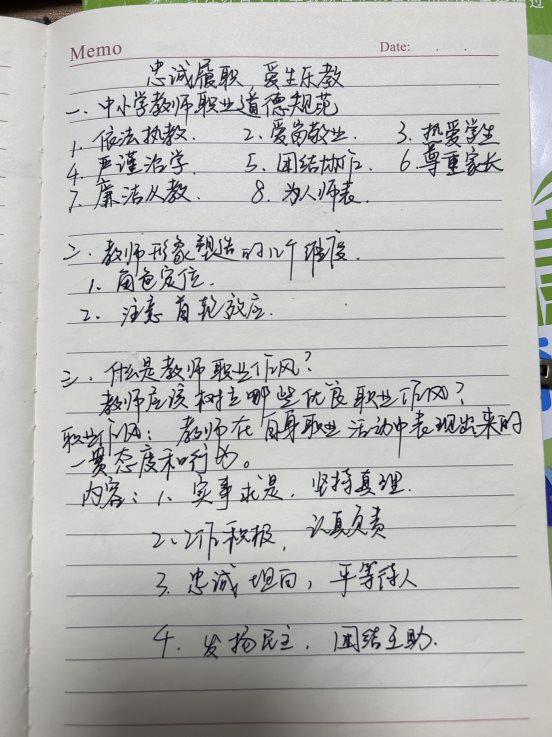 Memo Date: . .
忠诚履职,爱生乐教
一、中小学教师职业道德规范
1、依法执教. 2、爱岗敬业. 3、热爱学生
4、严谨治学. 5、团结协作. 6、尊重家长
7、廉洁从教. 8、为人师表.
二、教师形象塑造的12个维度.
1、角色定位.
2、注意首轮效应.
三、什么是教师职业作风?
教师应该树立哪些优良职业作风?
职业作风:教师在自身职业活动中表现出来的
一贯态度和行为。
内容:1、实事求是.坚持真理.
2、工作积极,认真负责
3、忠诚坦白,平等待人
4、发扬民主.团结互助.